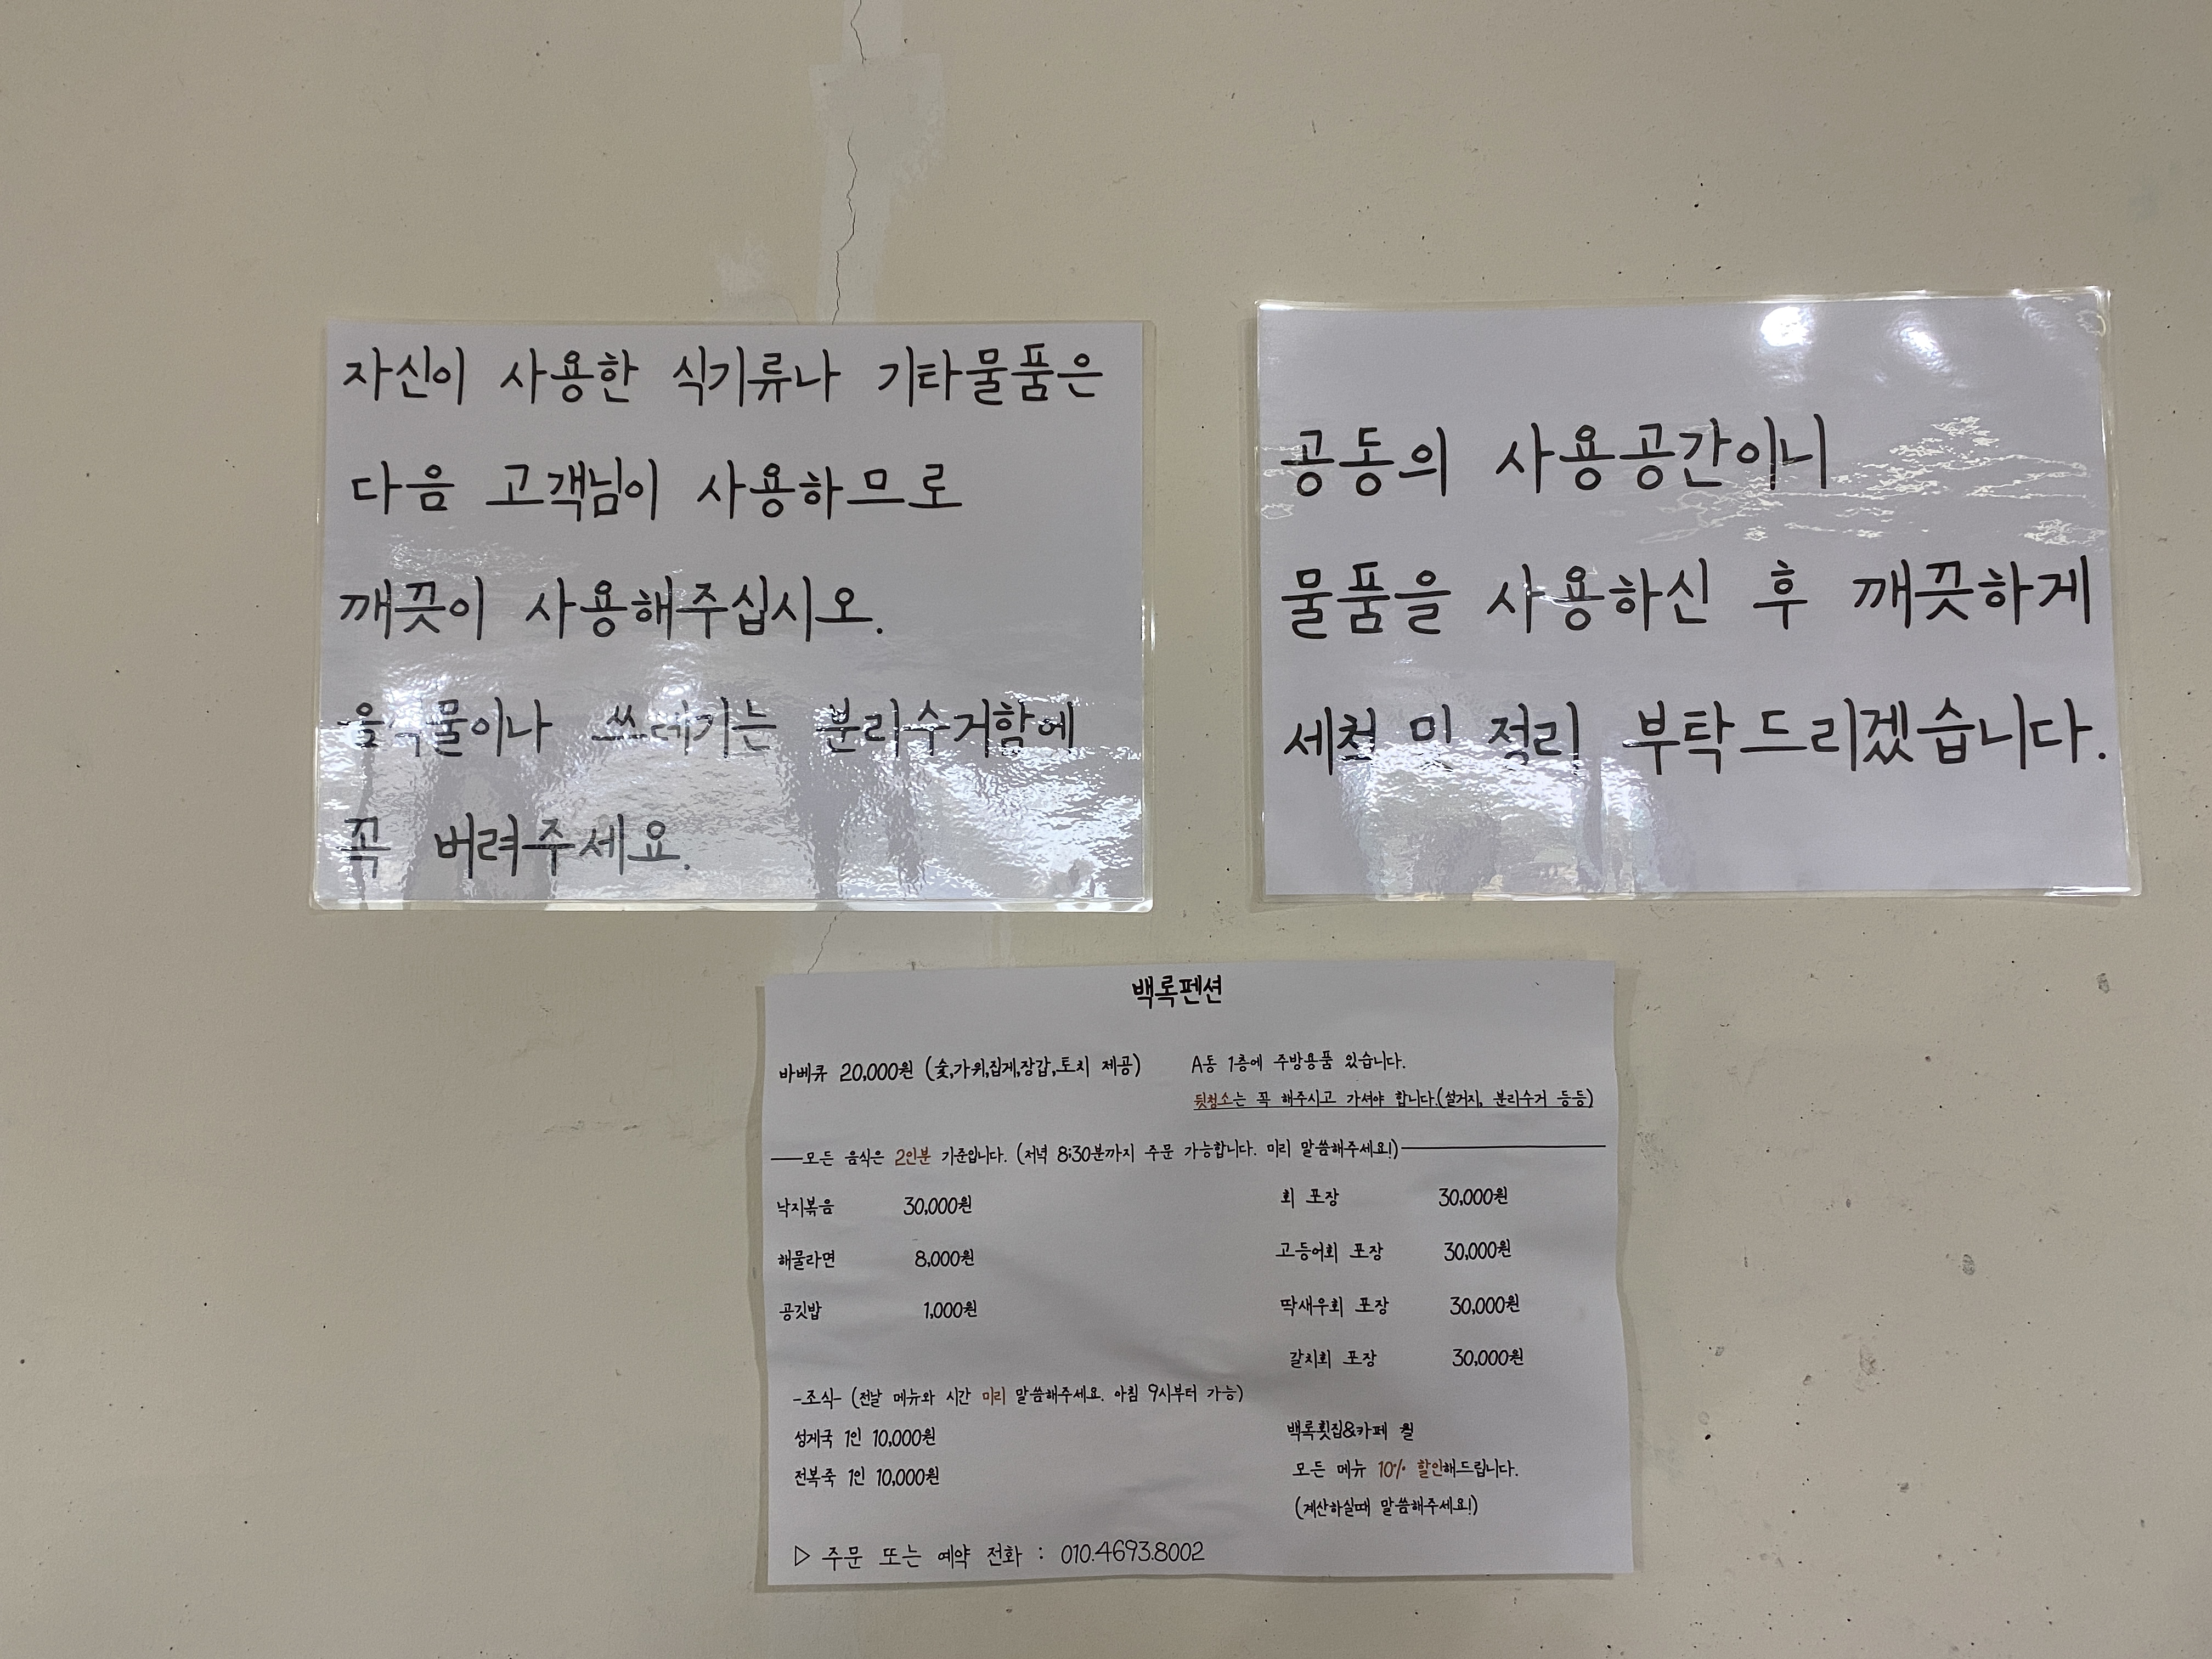 자신이 사용한 식기류나 기타물품은
다음 고객님이 사용하므로
깨끗이 사용해주십시오.
음식물이나 쓰레기는 분리수거함에
꼭 버려주세요.
공동의 사용공간이니
물품을 사용하신 후 깨끗하게
세척 및 정리 부탁드리겠습니다.
백록펜션
바베큐 20,000원 (숯,가위,집게,장갑,토치 제공)
A동 1층에 주방용품 있습니다.
뒷청소는 꼭 해주시고 가셔야 합니다.(설거지, 분리수거 등등)
모든 음식은 2인분 기준입니다. (저녁 8:30분까지 주문 가능합니다. 미리 말씀해주세요!)
낙지볶음 30,000원
해물라면 8,000원
공깃밥 1,000원
회 포장 30,000원
고등어회 포장 30,000원
딱새우회 포장 30,000원
갈치회 포장 30,000원
-조식- (전날 메뉴와 시간 미리 말씀해주세요. 아침 9시부터 가능)
성게국 1인 10,000원
전복죽 1인 10,000원
백록횟집&카페 월
모든 메뉴 10% 할인해드립니다.
(계산하실때 말씀해주세요!)
▷ 주문 또는 예약 전화 : 010.4693.8002